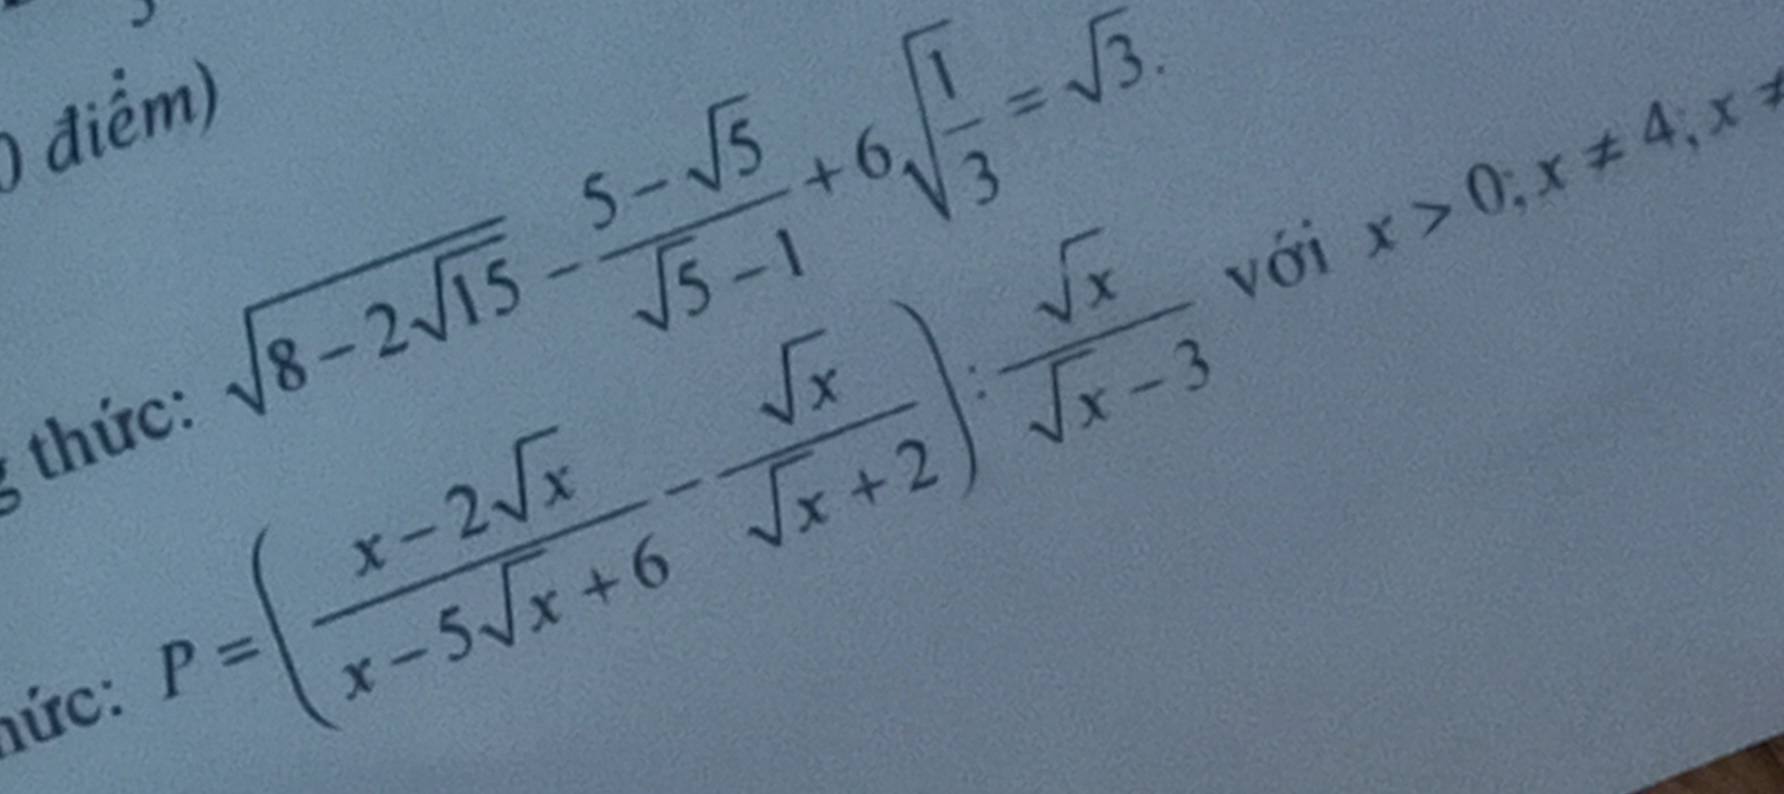 điểm)
thức: \sqrt{8-2\sqrt{15}} - \frac{5-\sqrt{5}}{\sqrt{5}-1} + 6\sqrt{\frac{1}{3}} = \sqrt{3}.
P = \left( \frac{x-2\sqrt{x}}{x-5\sqrt{x}+6} - \frac{\sqrt{x}}{\sqrt{x}+2} \right) : \frac{\sqrt{x}}{\sqrt{x}-3} với x > 0; x ≠ 4; x ≠